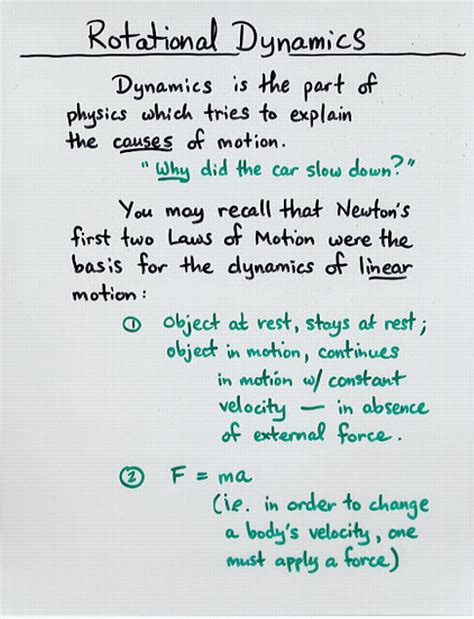 Rotational Dynamics
Dynamics is the part of
physics which tries to explain
the causes of motion.
"Why did the car slow down?"
You may recall that Newton's
first two Laws of Motion were the
basis for the dynamics of linear
motion:
① Object at rest, stays at rest;
object in motion, continues
in motion w/ constant
velocity — in absence
of external force.
② F = ma
(i.e. in order to change
a body's velocity, one
must apply a force)